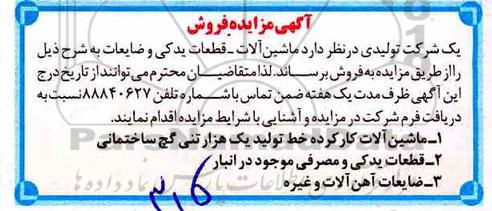 آگهی مزایده فروش
یک شرکت تولیدی در نظر دارد ماشین آلات ـ قطعات یدکی و ضایعات به شرح ذیل
را از طریق مزایده به فروش برساند. لذا متقاضیان محترم می‌توانند از تاریخ درج
این آگهی ظرف مدت یک هفته ضمن تماس با شماره تلفن ۸۸۸۴۰۶۲۷ نسبت به
دریافت فرم شرکت در مزایده و آشنایی با شرایط مزایده اقدام نمایند.
۱ـ ماشین آلات کارکرده خط تولید یک هزار تنی گچ ساختمانی
۲ـ قطعات یدکی و مصرفی موجود در انبار
۳ـ ضایعات آهن آلات و غیره